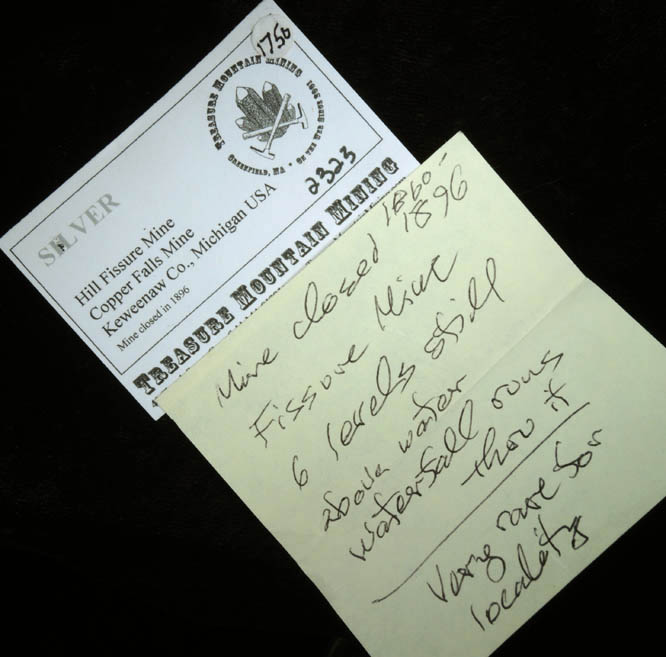 1756
TREASURE MOUNTAIN MINING
GREENFIELD, MA
2323
SILVER
Hill Fissure Mine
Copper Falls Mine
Keweenaw Co., Michigan USA
Mine closed in 1896
TREASURE MOUNTAIN MINING
1860-
Mine closed 1896
Fissure Mine
6 levels still
above water
waterfall runs
throu it
Very rare for
locality